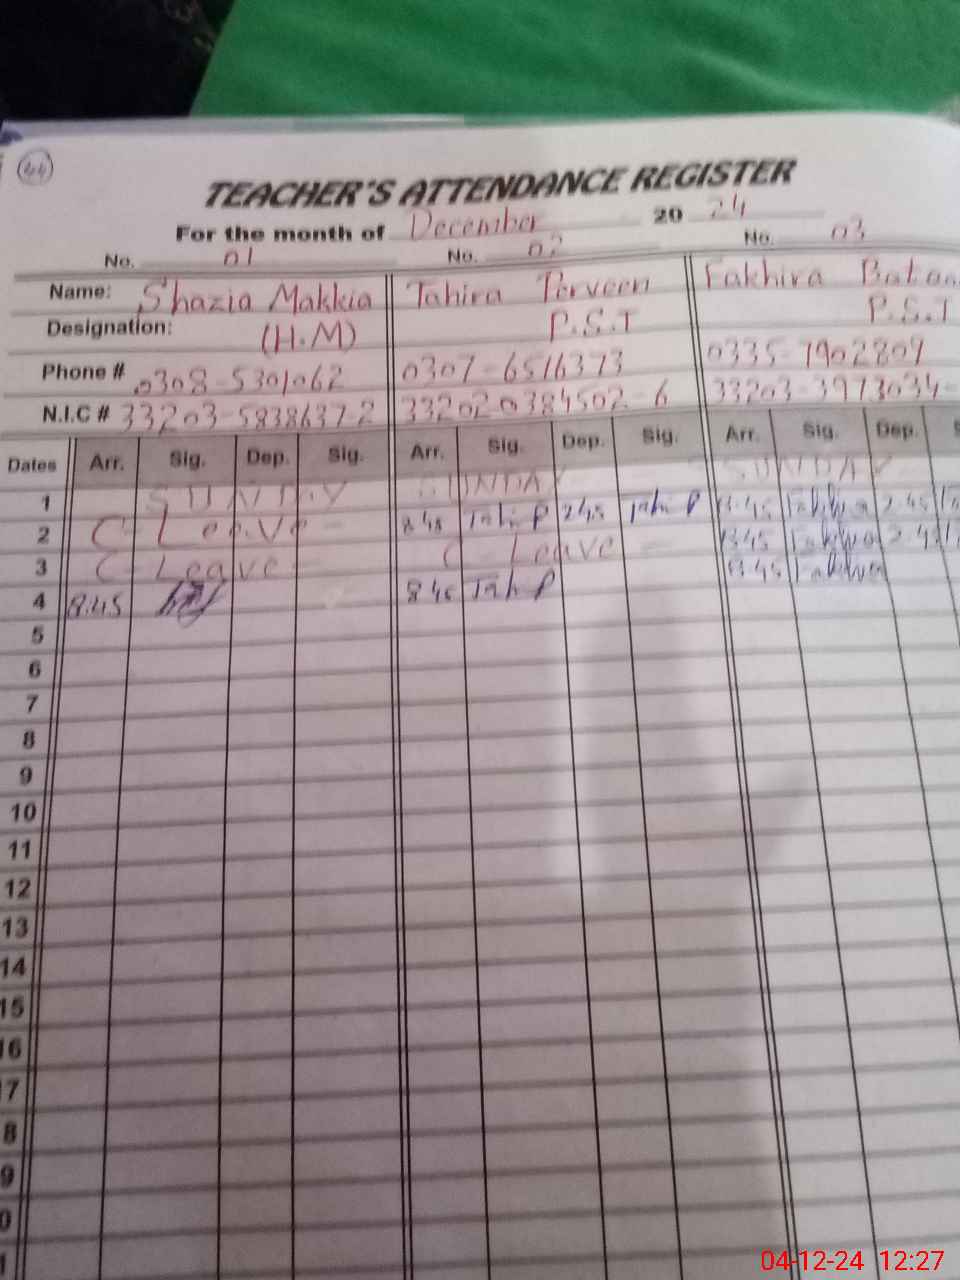 44
TEACHER'S ATTENDANCE REGISTER
For the month of December 20 24
No. 01 No. 02 No. 03
Name: Shazia Makkia Tahira Perveen Fakhira
Designation: (H.M) P.S.T P.S.T
Phone # 0308-5301062 0307-6516373 0335-7902809
N.I.C # 33203-5838637 2 33202 0384502-6 33203-3973034-
Dates Arr. Sig. Dep. Sig. Arr. Sig. Dep. Sig. Arr. Sig. Dep.
1 SUNDAY SUNDAY SUNDAY
2 C Leave 8 45 Tahi P 2 45 Tahi P 8:45 2:45
3 C Leave C Leave 8:45 2:45
4 8:45 8 45 Tahi P 8:45
5
6
7
8
9
10
11
12
13
14
15
16
7
8
9
0
1
04-12-24 12:27